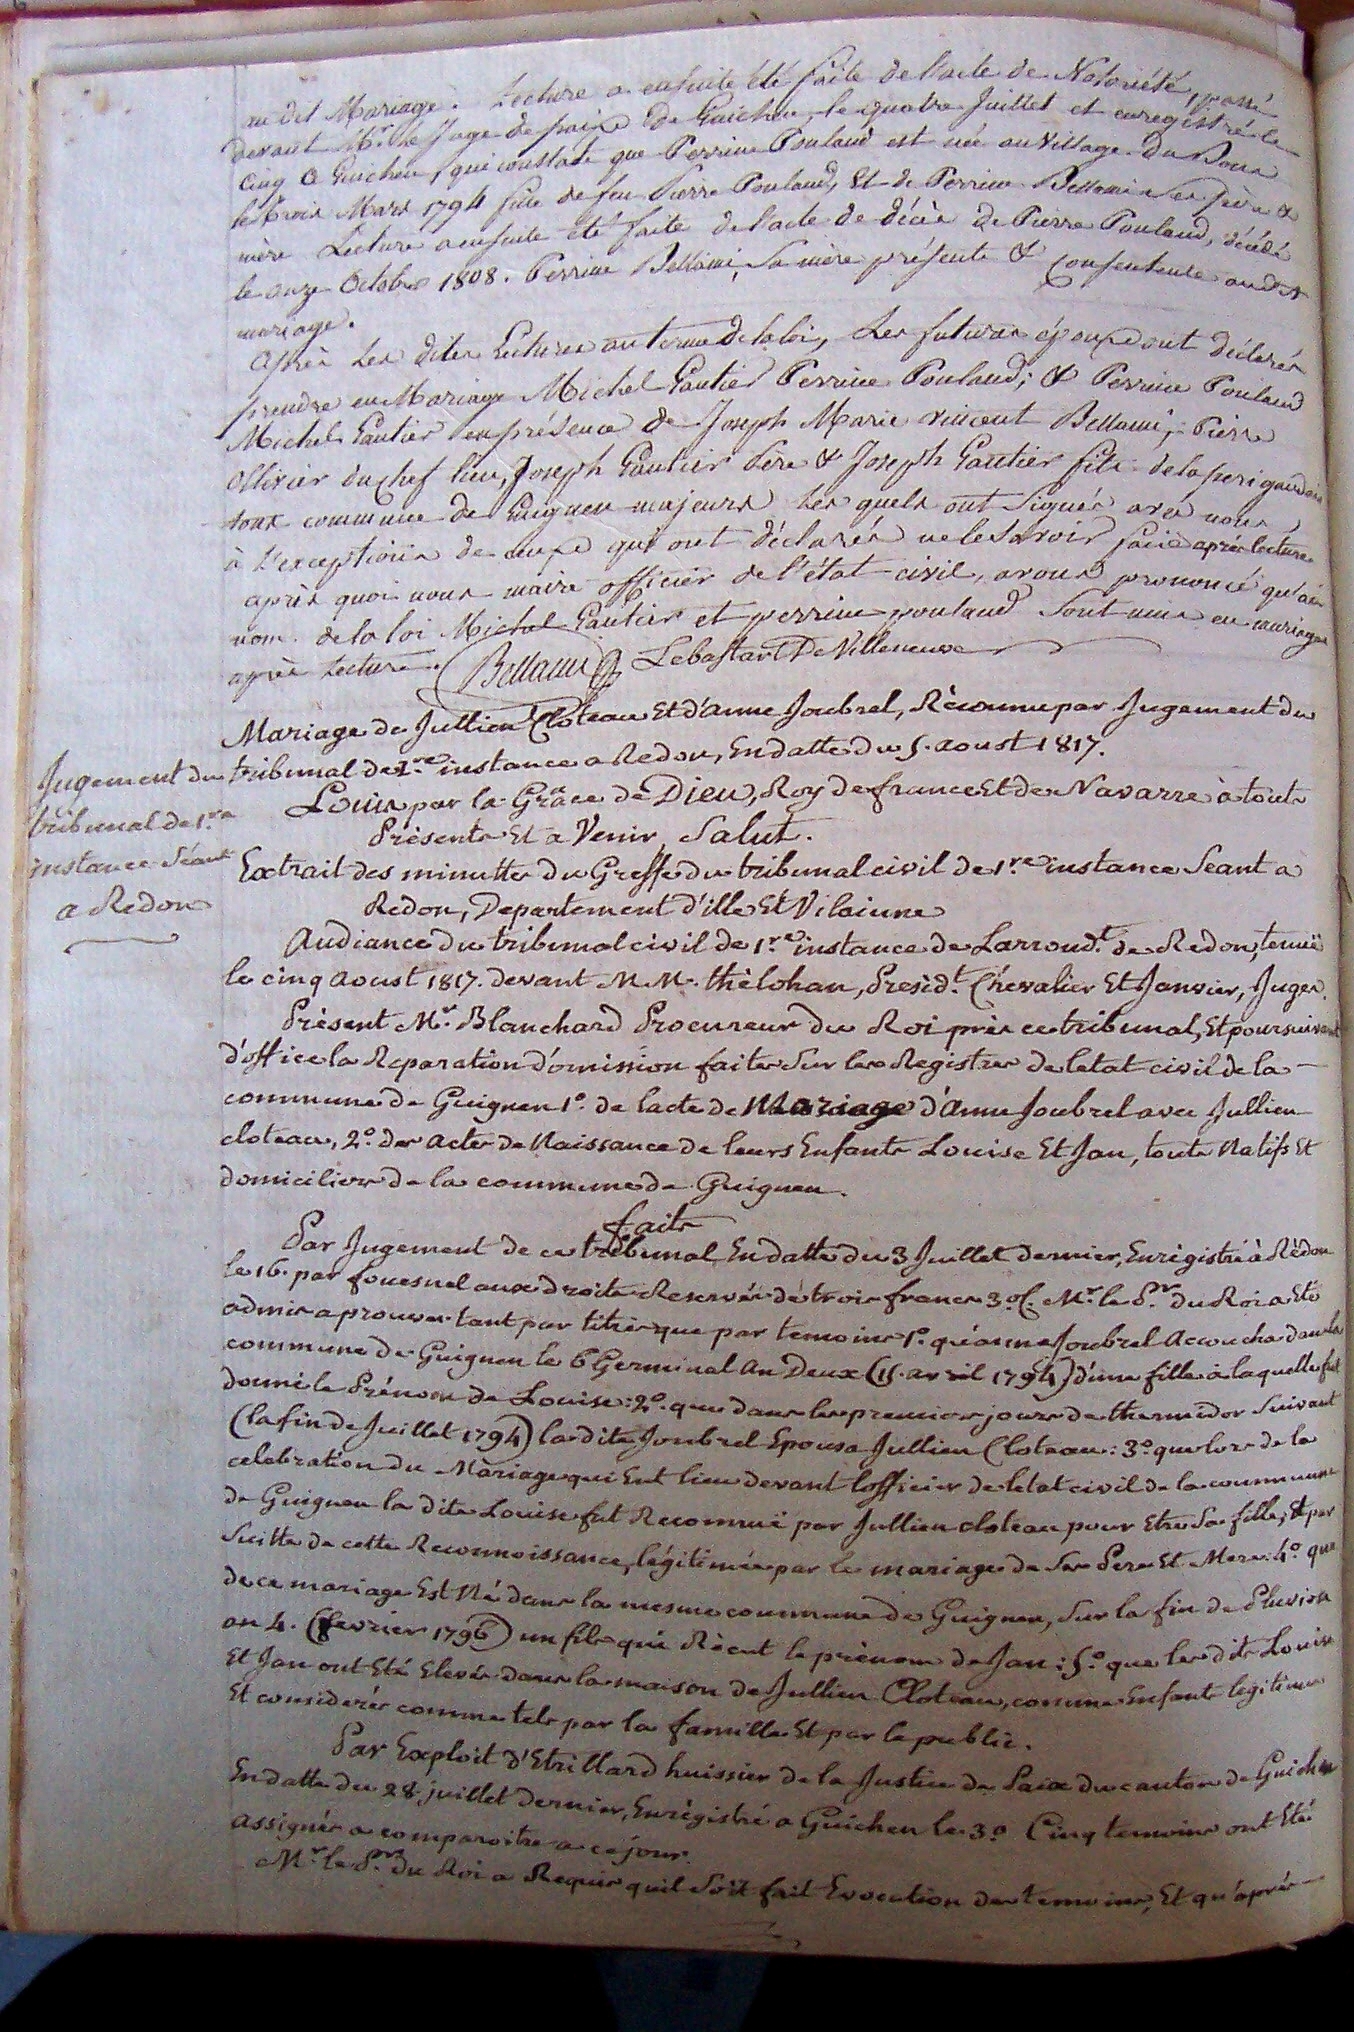 au dit Mariage. Lecture a ensuite été faite de l'acte de Notoriété, passé
devant Mr. le Juge de paix de Guichen, le quatre Juillet et enregistré le
cinq a Guichen, qui constate que Perrine Poulaud est née au village du
le trois Mars 1794 fille de feu Pierre Poulaud, Et de Perrine Bellami Ses père &
mère Lecture a ensuite été faite de l'acte de décès de Pierre Poulaud, décédé
le onze Octobre 1808. Perrine Bellami, Sa mère présente & consentente audit
mariage.
Après Les dites Lectures au terme de la loi, Les futures époux ont déclarés
prendre en Mariage Michel Gautier Perrine Poulaud; & Perrine Poulaud
Michel Gautier en présence de Joseph Marie Vincent Bellami, Pierre
Ollivier du chef lieu, Joseph Gautier Père & Joseph Gautier fils de la
tous commune de Guignen majeurs Les quels ont Signés avec nous,
à l'exception de ceux qui ont déclarés ne le Savoir faire après lecture
après quoi nous maire officier de l'état-civil, avons prononcé qu'au
nom de la loi Michel Gautier et perrine poulaud Sont unis en mariage
après Lecture. Bellami Lebastart De Villeneuve
Mariage de Jullien Cloteau Et d'anne Joubrel, Réconnu par Jugement du
tribunal de 1.re instance a Redon, En datte du 5. aoust 1817.
Jugement du
tribunal de 1.re
instance Séant
a Redon
Louis par la Grâce de Dieu, Roy de france Et de Navarre à touts
Présents Et a Venir, Salut.
Extrait des minuttes du Greffe du tribunal civil de 1.re instance Seant a
Redon, Departement d'ille Et Vilainne
Audiance du tribunal civil de 1.re instance de Larrond.t de Redon, tenuë
le cinq aoust 1817. devant M M. thélohan, Présid.t Chevalier Et Janvier, Juges.
Présent Mr. Blanchard Procureur du Roi près ce tribunal, Et poursuivant
d'office la Reparation d'omission faites Sur les Registres de letat civil de la
commune de Guignen 1.o de lacte de Mariage d'Anne Joubrel avec Jullien
cloteau, 2.o des actes de Naissance de leurs Enfants Louise Et Jan, touts Natifs Et
domiciliers de la commune de Guignen.
faits
Par Jugement de ce tribunal En datte du 3 Juillet dernier, Enrégistré à Rédon
le 16. par fouesnel aux droits Reservés de trois francs 30c. Mr. le P.r du Roi a Eté
admis a prouver tant par titres que par temoins 1.o qu'anne Joubrel Accoucha dans la
commune de Guignen le 6 Germinal an Deux (15. avril 1794) d'une fille a laquelle fut
donné le Prénom de Louise: 2.o que dans les premiers jours de thermidor Suivant
(la fin de Juillet 1794) la dite Joubrel Epousa Jullien Cloteau: 3.o que lors de la
celebration du Màriage qui Eut lieu devant lofficier de letat civil de la commune
de Guignen la dite Louise fut Reconnuë par Jullien cloteau pour Etre Sa fille, Et par
Suitte de cette Reconnoissance, légitimée par le mariage de Ses Pere Et Mere: 4.o que
de ce mariage Est Né dans la mesme commune de Guignen, Sur la fin de Pluviose
an 4. (fevrier 1796) un fils qui Réçut le prénom de Jan: 5.o que les dits Louise
Et Jan ont Eté Elevés dans la maison de Jullien Cloteau, comme Enfants legitimes
Et considerés comme tels par la famille Et par le public.
Par Exploit d'Etrillard huissier de la Justice de Paix du canton de Guichen
En datte du 28 juillet dernier, Enrégistré a Guichen le 30 Cinq temoins ont Eté
assignés a comparoitre a ce jour.
Mr. le P.r du Roi a Requis quil Soit fait Evocation des temoins, Et qu'après